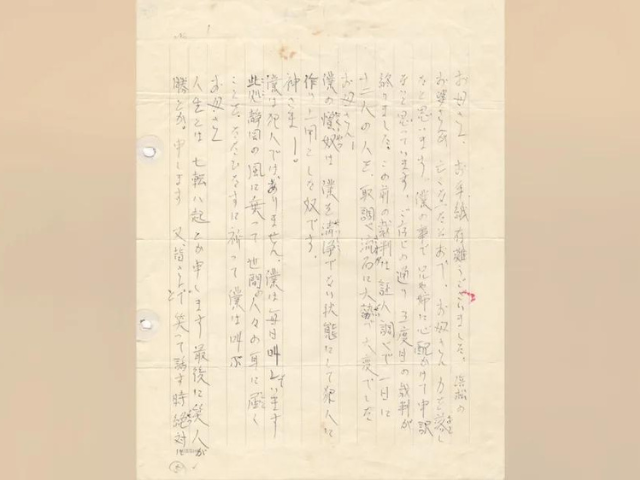 お母さん、お手紙有難うございました。浜松の
お婆さんが亡くなったとかで、お母さんも力を落し
たと思います 僕の事で兄姉に心配かけて申訳
ないと思っています。ご存じの通り3度目の裁判が
終りました。この前の裁判は証人調べで一日に
十二人の人を、取調べ
お母さん!
僕の憎い奴は 僕を清浄でない状態にして犯人に
作り上げようとした奴です。
神さまー。
僕は犯人ではありません、僕は毎日叫んでいます
此の静岡の風に乗って世間の人々の耳に届く
ことを、ただひたすらに祈って僕は叫ぶ
お母さん
人生とは七転八起とか申します 最後に笑う人が
勝とか、申します 又、皆さんで笑って話す時絶対に